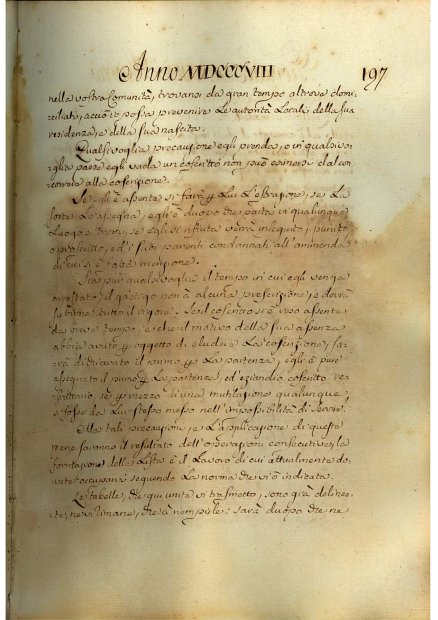 Anno MDCCCVIII
197
nella vostra Comunità, trovansi da gran tempo altrove domi:
ciliati, acciò io possa prevenire le autorità Locali della sua
residenza, e della sua nascita.
Qualsivoglia precauzione egli prenda, o in qualsivo:
glia paese egli vada un coscritto non può esimersi dal con:
correre alla coscrizione.
Se egli è assente si farà p lui l'estrazione, se la
sorte lo assegna, egli è duopo che parta in qualunque
luogo si trovi, se egli si rifiuta verrà inseguito, punito
o proscritto, ed i suoi parenti condannati all'ammenda
di cui si è fatta menzione.
Sia pur qualsivoglia il tempo in cui egli venga
arrestato il gastigo non à alcuna prescrizione, e dovrà
subirne tutto il rigore. Se il coscritto si è reso assente
da breve tempo, e che il motivo della sua assenza
abbia avuto p oggetto di eludere la coscrizione, sa:
rà dichiarato il primo p la partenza, egli è pure
assegnato il primo p la partenza, ed eziandio coscritto re
se p mezzo di una mutilazione qualunque,
da lui stesso messo nell'impossibilità di servire.
Ma tali precauzioni, e l'applicazione di queste
pene saranno il resultato dell'operazioni consecutive, la
formazione delle liste è il lavoro di cui attualmente do:
vete occuparvi seguendo la norma che vi ò indicata.
Le tabelle, che qui unite vi trasmetto, sono già delinea:
te, ne vi rimane, che a riempirle: sarà duopo che ne